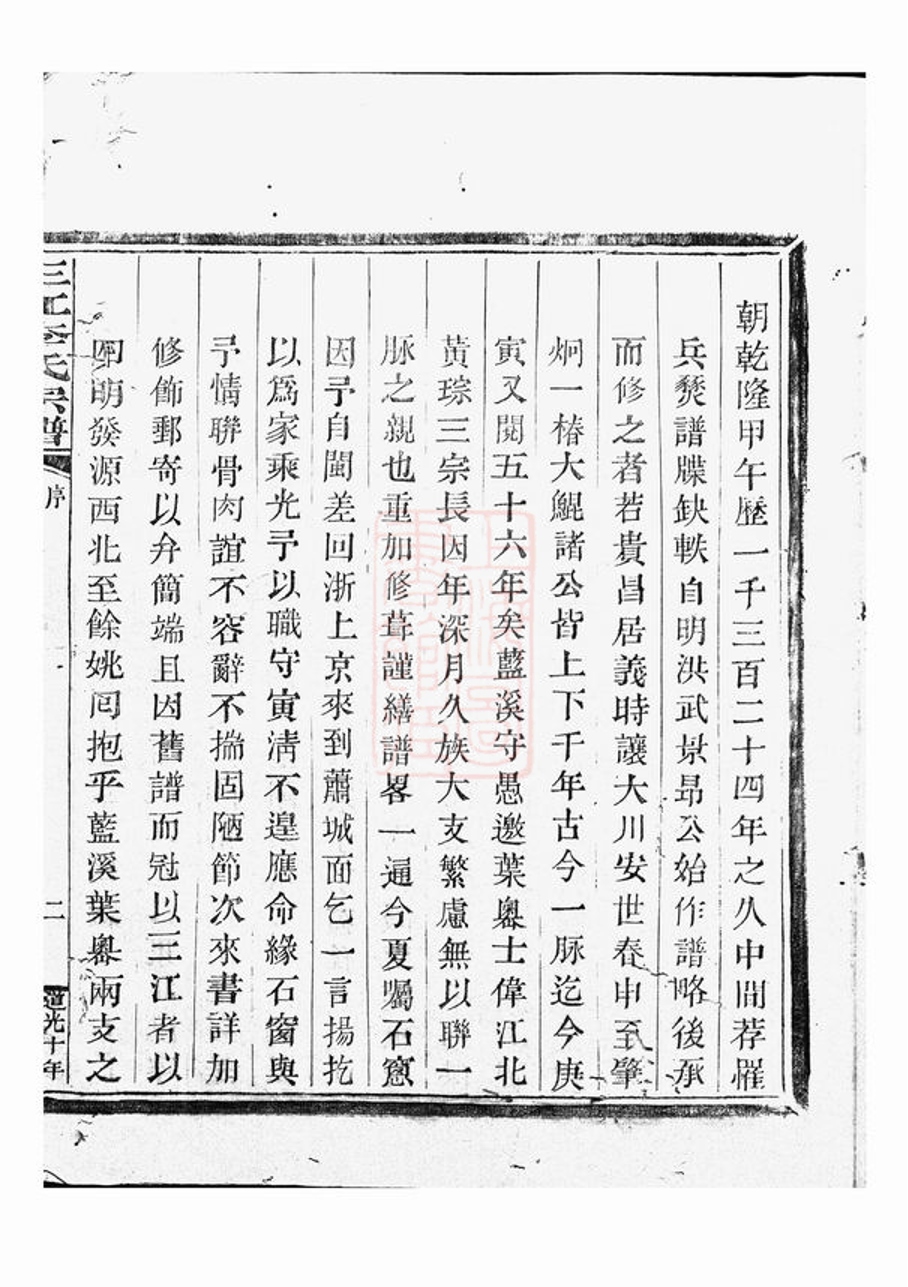 朝乾隆甲午歷一千三百二十四年之久中間荐罹
兵燹譜牒缺軼自明洪武景昴公始作譜略後承
而修之者若貴昌居義時讓大川安世春申至肇
炯一椿大鯤諸公皆上下千年古今一脉迄今庚
寅又閱五十六年矣藍溪守愚邀葉嶴士偉江北
黃琮三宗長因年深月久族大支繁慮無以聯一
脉之親也重加修葺謹繕譜畧一通今夏囑石窻
因予自閩差回浙上京來到蕭城面乞一言揚扢
以爲家乘光予以職守寅淸不遑應命緣石窗與
予情聯骨肉誼不容辭不揣固陋節次來書詳加
修飾郵寄以弁簡端且因舊譜而冠以三江者以
四明發源西北至餘姚囘抱乎藍溪葉嶴兩支之
三江李氏宗譜
序
二
道光十年